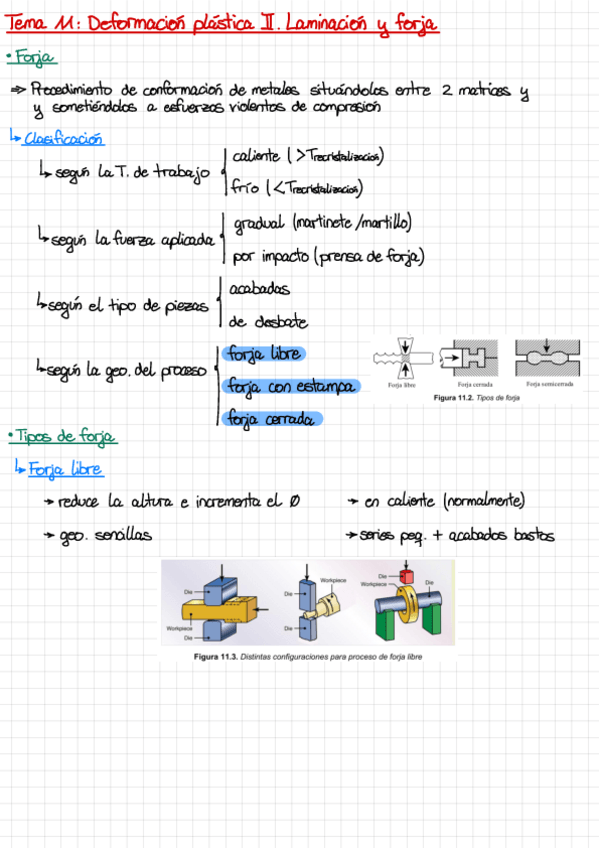 Tema 11: Deformación plástica II. Laminación y forja
• Forja
⇒ Procedimiento de conformación de metales situándolos entre 2 matrices y
y sometiéndolos a esfuerzos violentos de compresión
↳ Clasificación
↳ según la T. de trabajo
caliente (>Trecristalización)
frío (<Trecristalización)
↳ según la fuerza aplicada
gradual (martinete/martillo)
por impacto (prensa de forja)
↳ según el tipo de piezas
acabadas
de desbate
↳ según la geo. del proceso
forja libre
forja con estampa
forja cerrada
Forja libre
Forja cerrada
Forja semicerrada
Figura 11.2. Tipos de forja
• Tipos de forja
↳ Forja libre
→ reduce la altura e incrementa el Ø
→ en caliente (normalmente)
→ geo. sencillas
→ series peq. + acabados bastos
Die
Workpiece
Die
Die
Workpiece
Die
Die
Workpiece
Die
Figura 11.3. Distintas configuraciones para proceso de forja libre